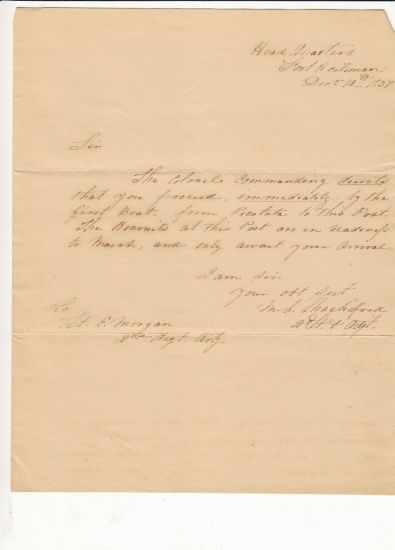 Head Quarters
Fort Heileman
Decr 18th 1837
Sir
The Colonel Commanding directs
that you proceed, immediately by the
first Boat, from Picolata to this Post.
The Recruits at this Post are in readiness
to March, and only await your arrival.
I am Sir
your obt Servt
M. S. Shackleford
2d Lt. & Adjt.
To
Lt. E. Morgan
Regt. Arty